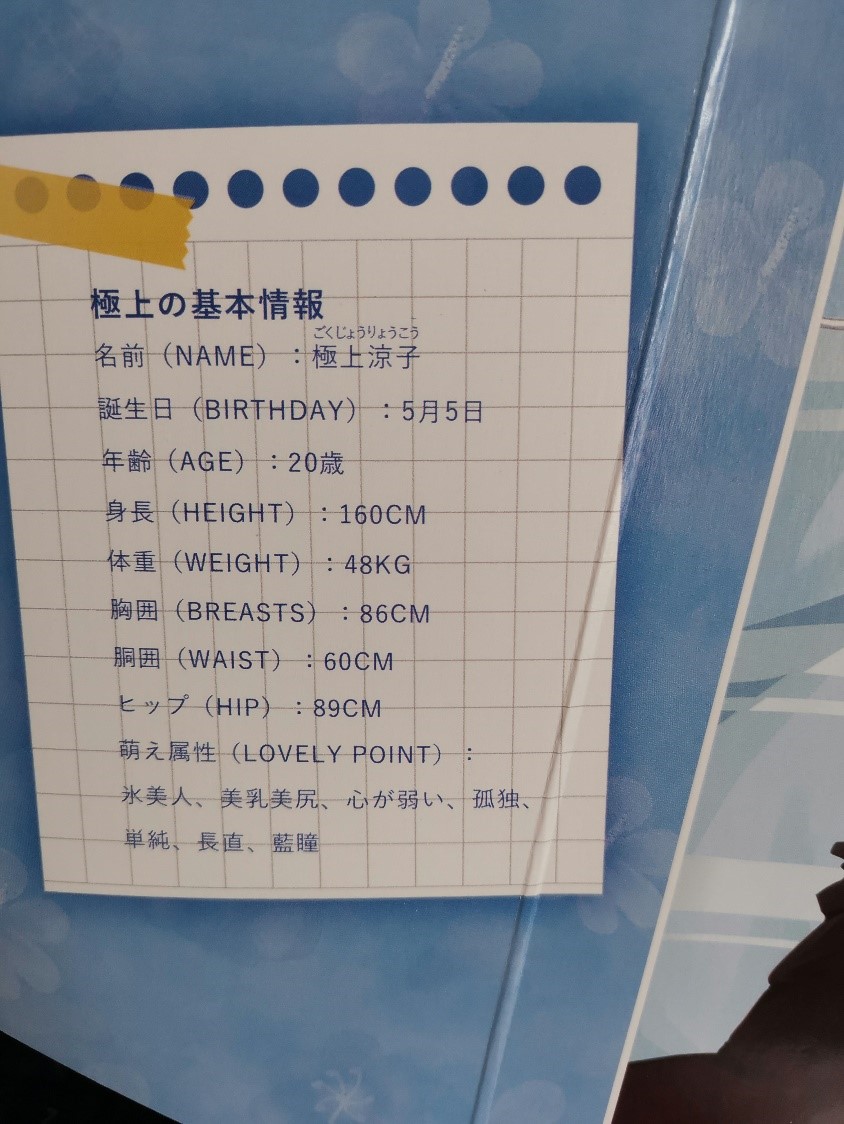 極上の基本情報
ごくじょうりょうこう
名前（NAME）：極上涼子
誕生日（BIRTHDAY）：5月5日
年齢（AGE）：20歳
身長（HEIGHT）：160CM
体重（WEIGHT）：48KG
胸囲（BREASTS）：86CM
胴囲（WAIST）：60CM
ヒップ（HIP）：89CM
萌え属性（LOVELY POINT）：
氷美人、美乳美尻、心が弱い、孤独、
単純、長直、藍瞳